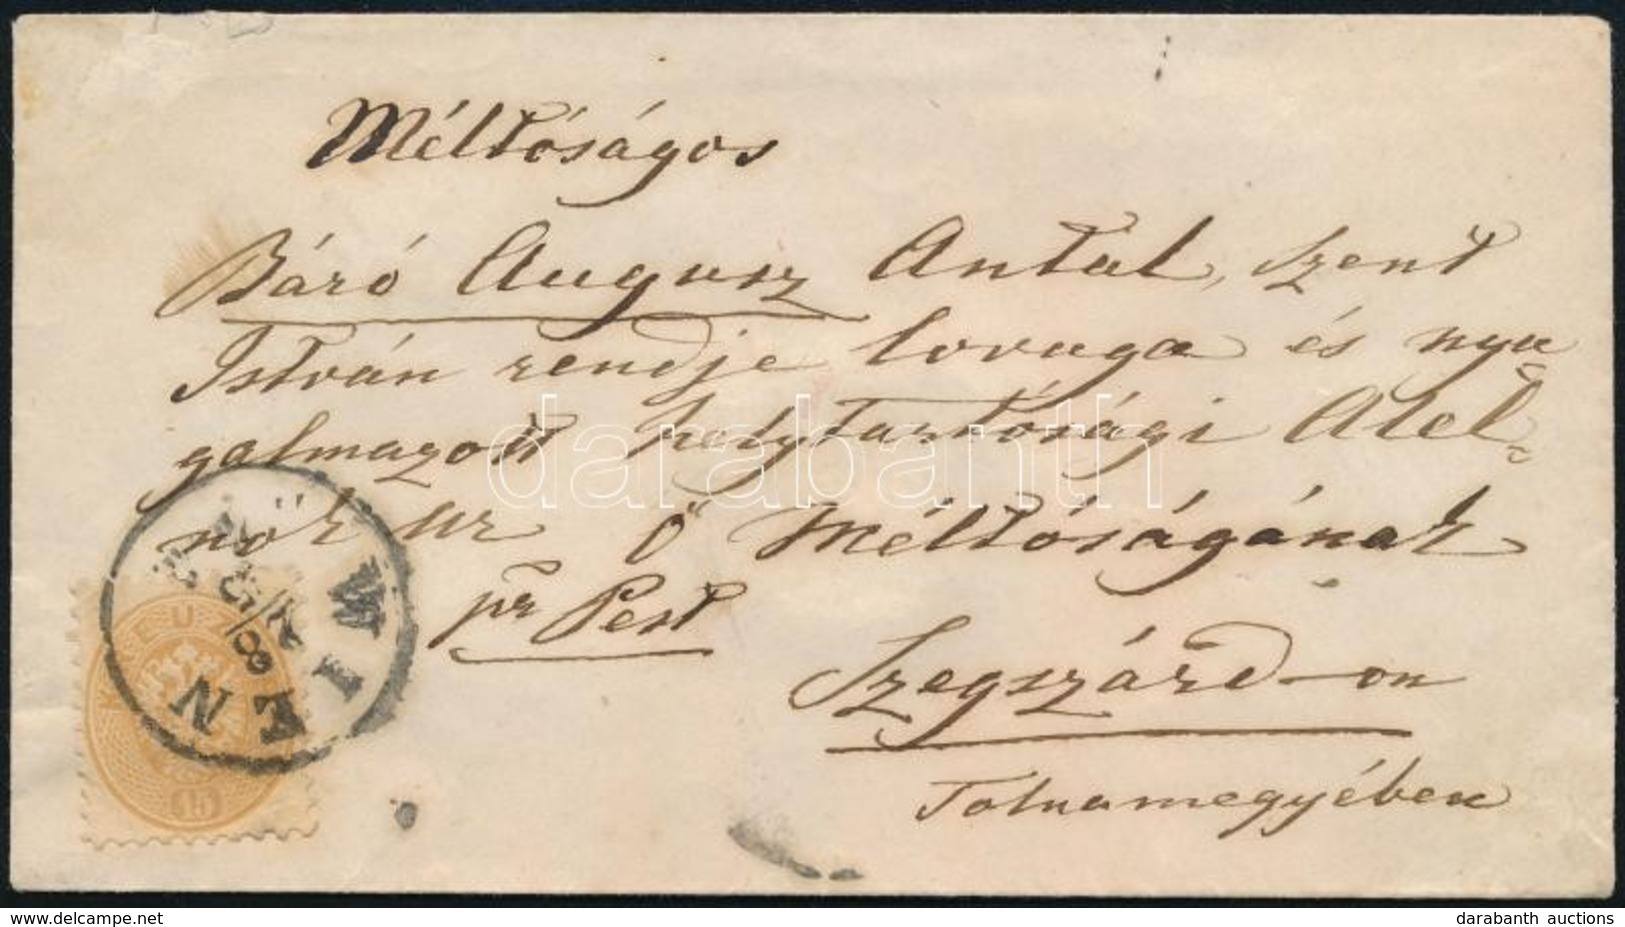 Méltóságos
Báró Augusz Antal, Szent
István rendje lovaga és nyu=
galmazott helytartósági Alel=
nök ur Ő Méltóságának
pr Pest
Szegszárd-on
Tolnamegyében
WIEN
15
darabanth
delcampe.net
darabanth auctions